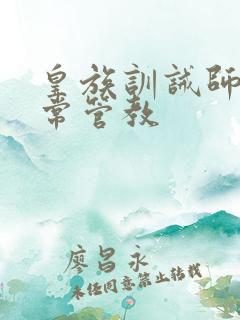 皇族訓誡師
常管教
廖昌永
未經同意禁止轉載